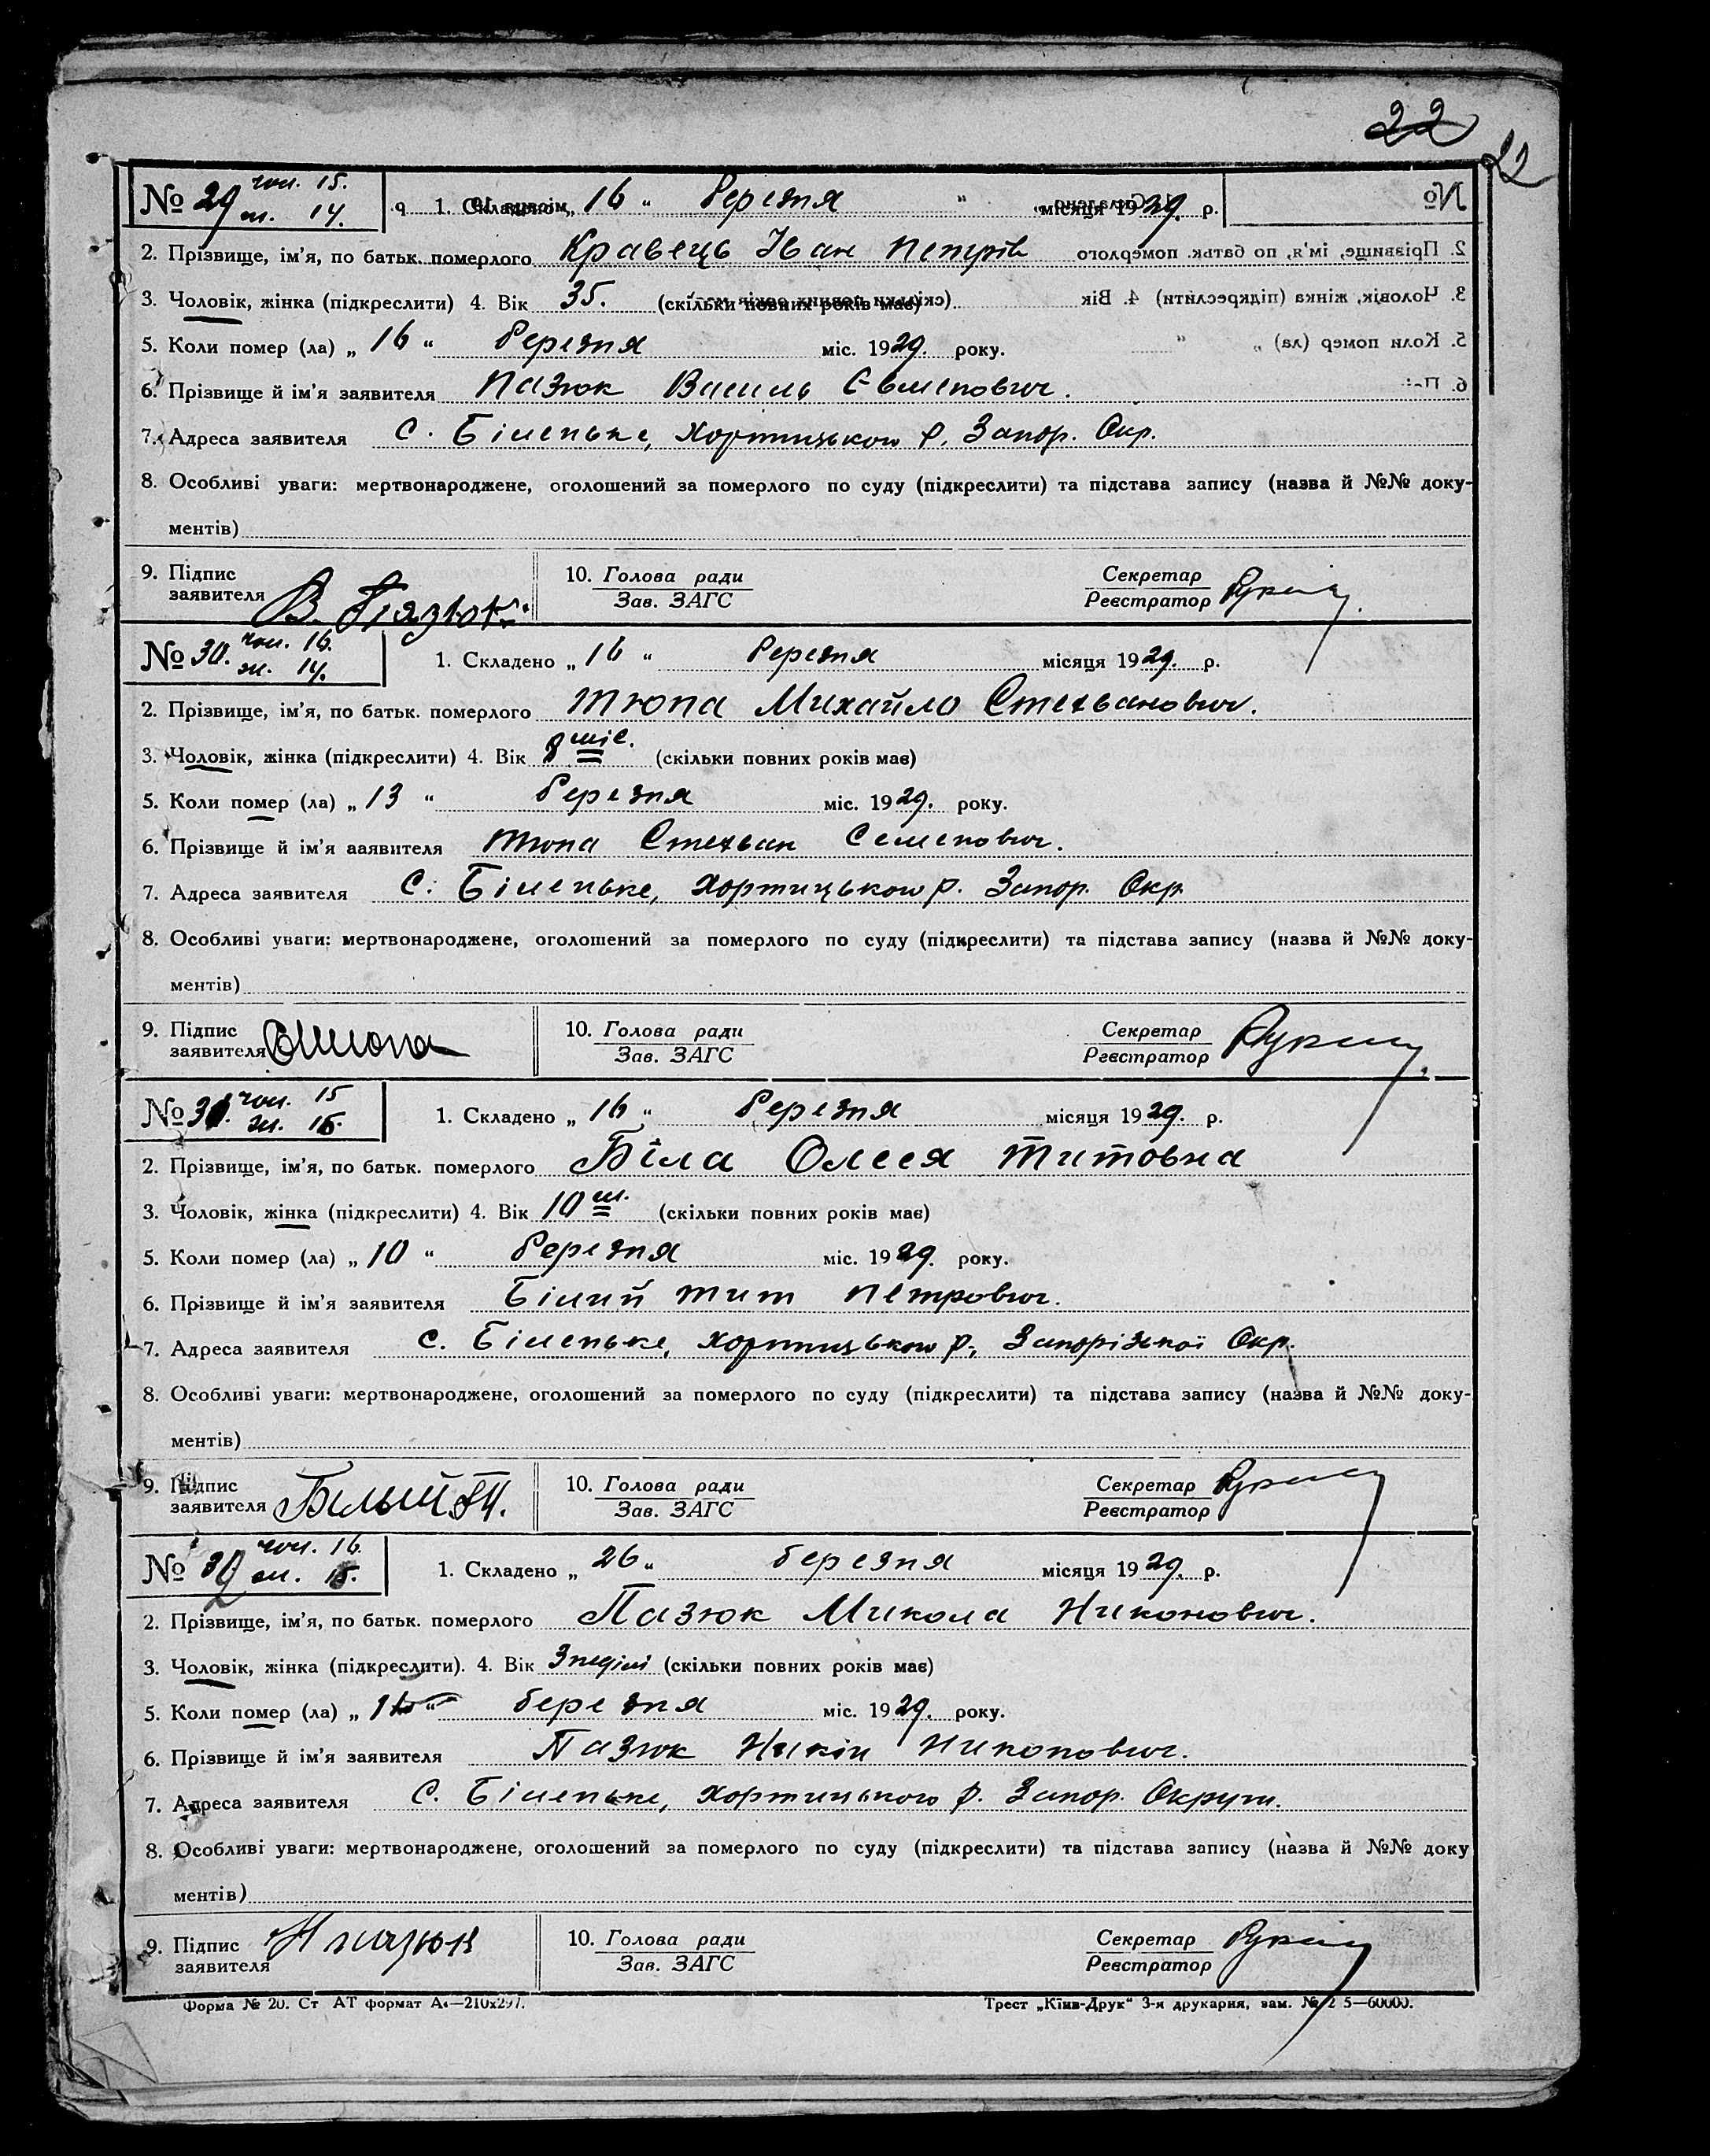 22
22
№ 29 чол. 15.
ж. 14.
1. Складено „ 16 “ березня місяця 1929. р.
2. Прізвище, ім'я, по батьк. померлого Кравець Іван Петрів
3. Чоловік, жінка (підкреслити) 4. Вік 35. (скільки повних років має)
5. Коли помер (ла) „ 16 “ березня міс. 1929. року.
6. Прізвище й ім'я заявителя Пазюк Василь
7. Адреса заявителя С. Біленьке, Хортицького р. Запор. Окр.
8. Особливі уваги: мертвонароджене, оголошений за померлого по суду (підкреслити) та підстава запису (назва й №№ доку-
ментів)
9. Підпис заявителя В. Пязюк
10. Голова ради
Зав. ЗАГС
Секретар
Реєстратор
№ 30. чол. 16.
ж. 14.
1. Складено „ 16 “ березня місяця 1929. р.
2. Прізвище, ім'я, по батьк. померлого Тюпа Михайло Стехванович.
3. Чоловік, жінка (підкреслити) 4. Вік 8 міс. (скільки повних років має)
5. Коли помер (ла) „ 13 “ березня міс. 1929. року.
6. Прізвище й ім'я заявителя Тюпа Стехван Семенович.
7. Адреса заявителя С. Біленьке, Хортицького р. Запор. Окр.
8. Особливі уваги: мертвонароджене, оголошений за померлого по суду (підкреслити) та підстава запису (назва й №№ доку-
ментів)
9. Підпис заявителя
10. Голова ради
Зав. ЗАГС
Секретар
Реєстратор
№ 31. чол. 15
ж. 16.
1. Складено „ 16 “ березня місяця 1929. р.
2. Прізвище, ім'я, по батьк. померлого Біла Олеся Титовна
3. Чоловік, жінка (підкреслити) 4. Вік 10 м. (скільки повних років має)
5. Коли помер (ла) „ 10 “ березня міс. 1929. року.
6. Прізвище й ім'я заявителя Білий Тит Петрович.
7. Адреса заявителя с. Біленьке, Хортицького р., Запорізької Окр.
8. Особливі уваги: мертвонароджене, оголошений за померлого по суду (підкреслити) та підстава запису (назва й №№ доку-
ментів)
9. Підпис заявителя Білый Т.
10. Голова ради
Зав. ЗАГС
Секретар
Реєстратор
№ 32 чол. 16.
ж. 15.
1. Складено „ 26 “ березня місяця 1929. р.
2. Прізвище, ім'я, по батьк. померлого Пазюк Микола Никонович.
3. Чоловік, жінка (підкреслити). 4. Вік 3 неділі (скільки повних років має)
5. Коли помер (ла) „ “ березня міс. 1929. року.
6. Прізвище й ім'я заявителя Пазюк Никін Никонович.
7. Адреса заявителя С. Біленьке, Хортицького р. Запор. Округи.
8. Особливі уваги: мертвонароджене, оголошений за померлого по суду (підкреслити) та підстава запису (назва й №№ доку
ментів)
9. Підпис заявителя Н Пазюк
10. Голова ради
Зав. ЗАГС
Секретар
Реєстратор
Форма № 20. Ст АТ формат А4—210x297.
Трест „Київ-Друк“ 3-я друкарня, зам. № 2 5—60000.